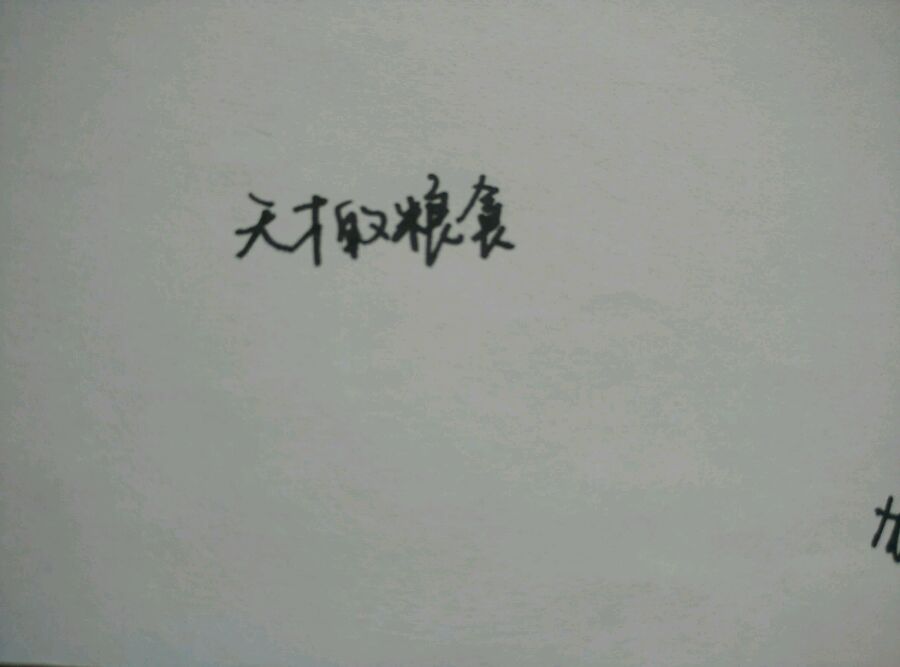 天才的粮食